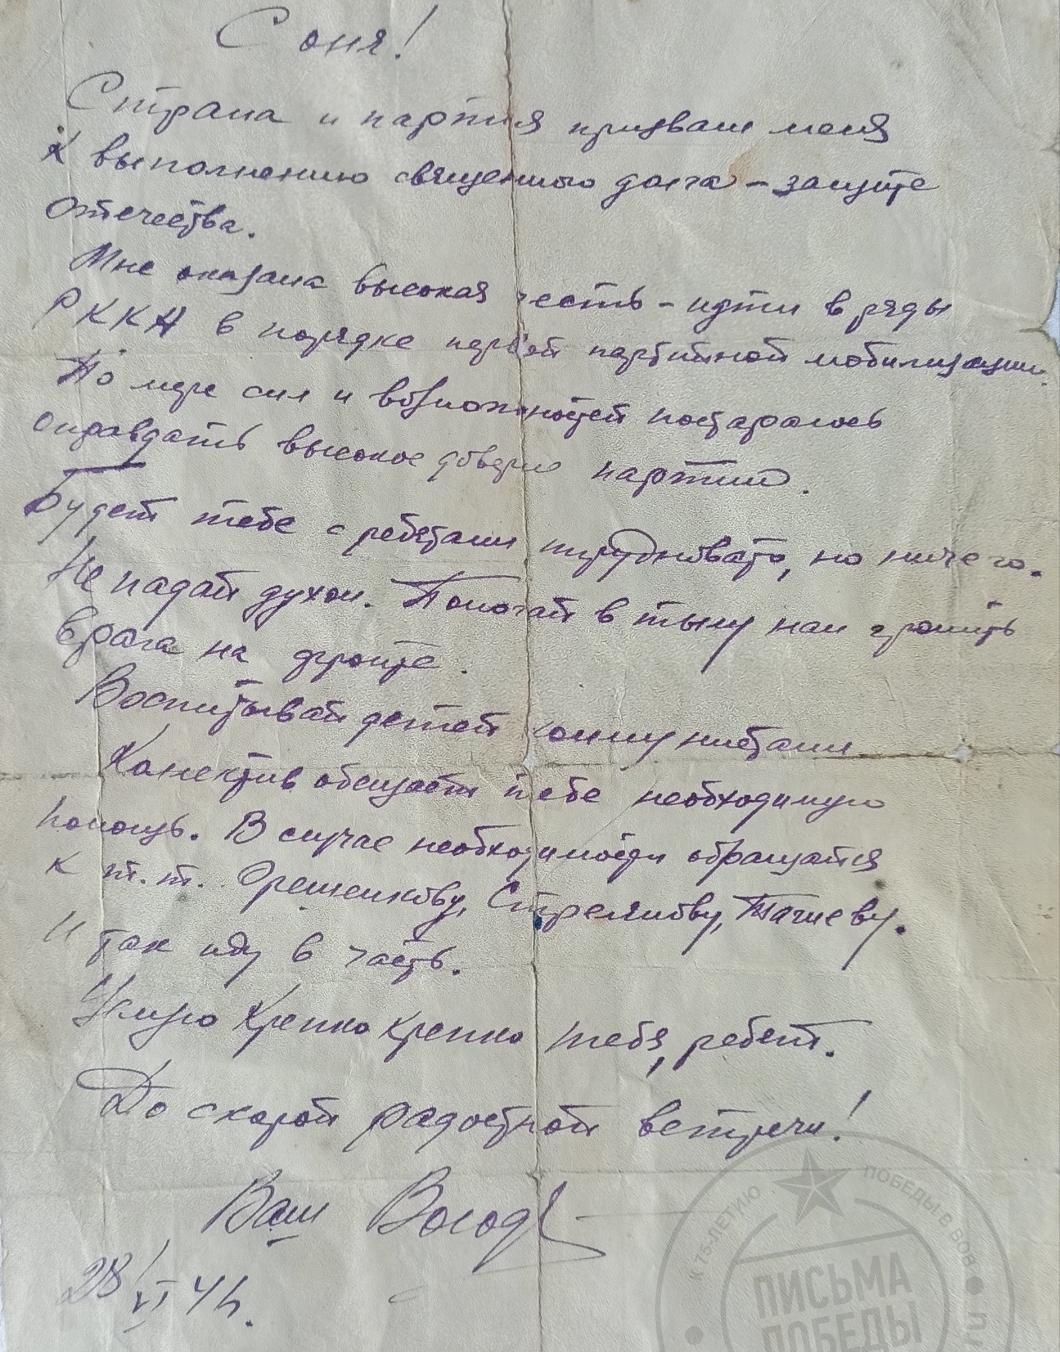 Соня!
Страна и партия призвали меня
к выполнению священного долга – защите
отечества.
Мне оказана высокая честь – идти в ряды
РККА в порядке первой партийной мобилизации.
По мере сил и возможностей постараюсь
оправдать высокое доверие партии.
Будет тебе с ребятами трудновато, но ничего.
Не падай духом. Помогай в тылу нам громить
врага на фронте.
Воспитывай детей коммунистами
Колектив обещает тебе необходимую
помощь. В случае необходимости обращайся
к т.т. Орешенкову, Стрелкову,
Итак иду в часть.
Целую крепко крепко тебя, ребят.
До скорой радостной встречи!
Ваш Володя
28/VI 41г.
К 75-ЛЕТИЮ ПОБЕДЫ В ВОВ
ПИСЬМА
ПОБЕДЫ